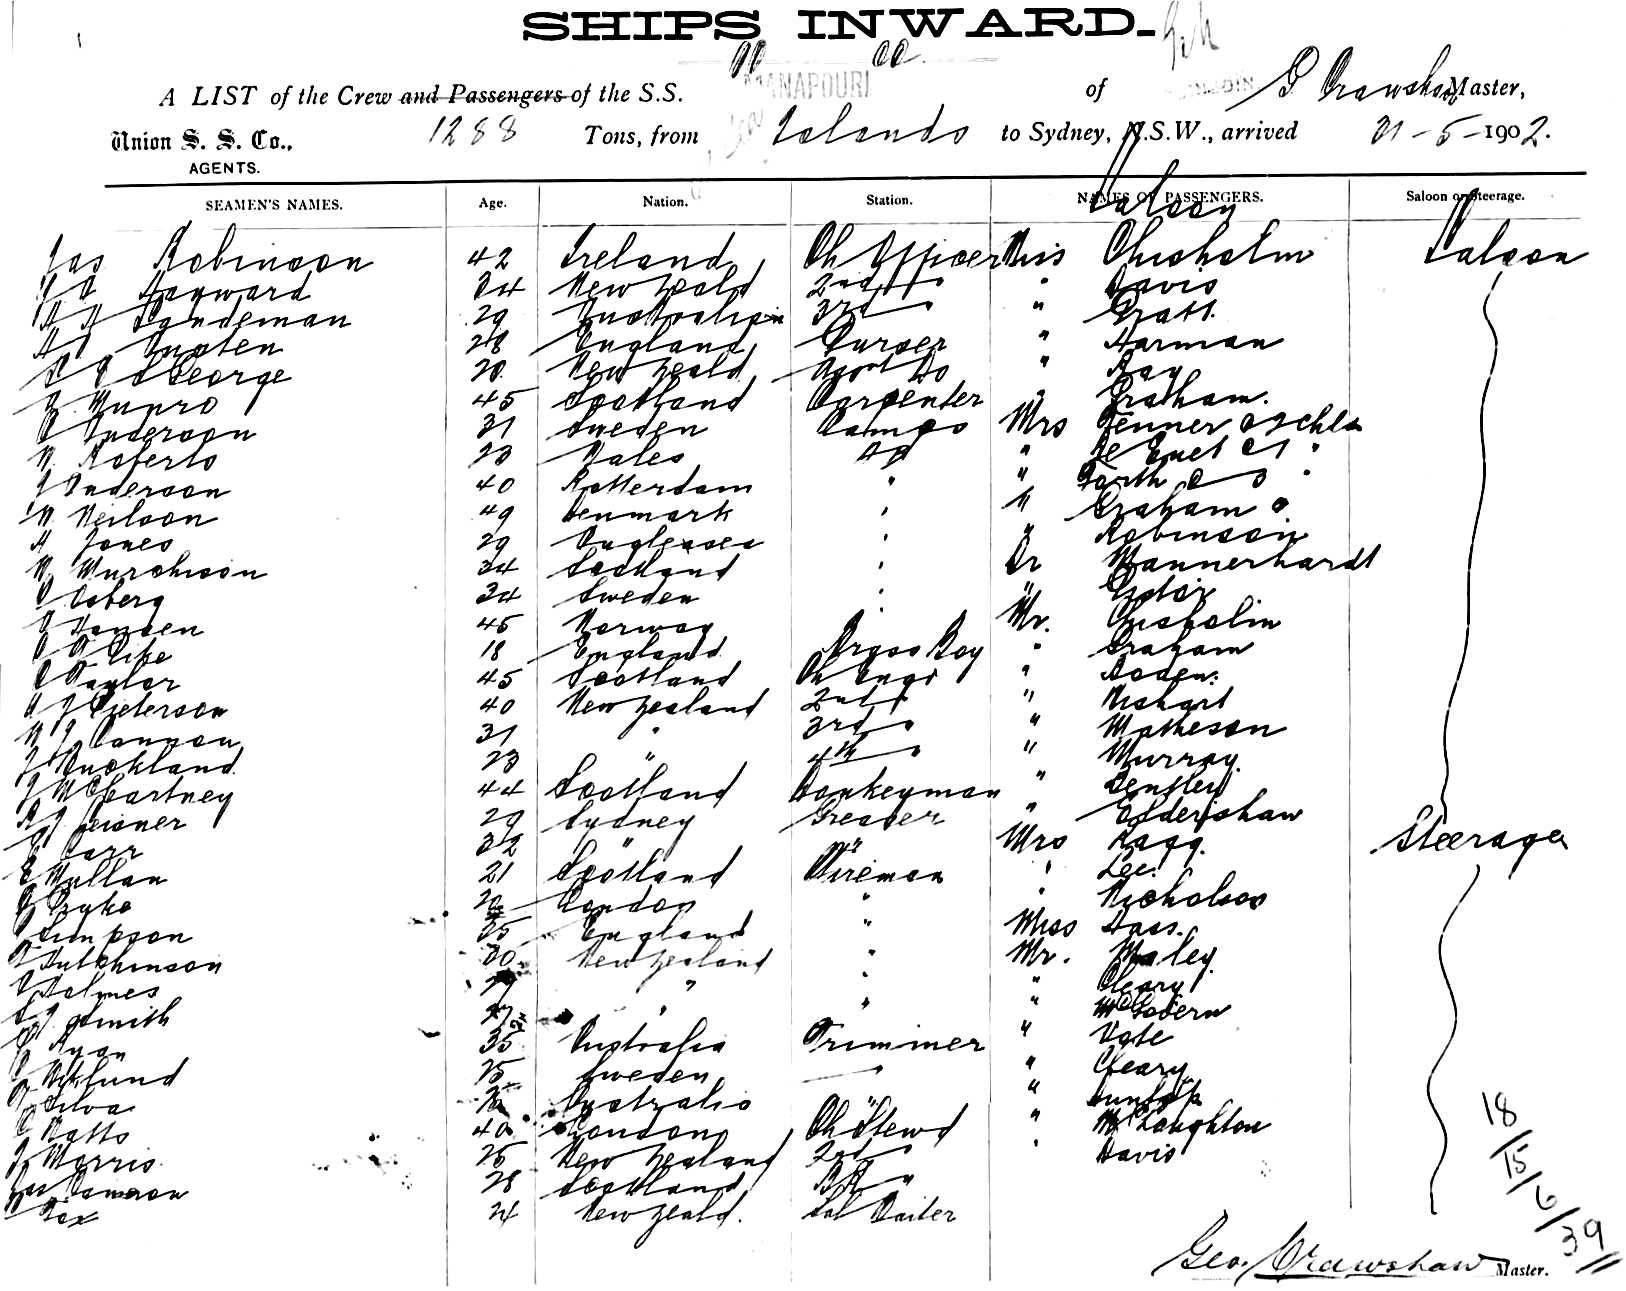 SHIPS INWARD.
MANAPOURI
A LIST of the Crew and Passengers of the S.S. of G Crawshaw Master,
Union S. S. Co., 1288 Tons, from Islands to Sydney, N.S.W., arrived 21-5-1902.
AGENTS.
SEAMEN'S NAMES. Age. Nation. Station. NAMES OF PASSENGERS. Saloon or Steerage.
Saloon
Jas Robinson 42 Ireland Ch Officer Miss Chisholm Saloon
Hayward 34 New Zeald 2nd " " Davis
Sandeman 29 Australian 3rd " " Gratt
28 England Purser " Harman
George 20 New Zeald Do " Ray
J. Munro 45 Scotland Carpenter " Graham.
Anderson 31 Sweden Lamps Mrs Fenner
W. Roberts 23 Wales AB "
J Anderson 40 Rotterdam " "
W Neilson 49 Denmark " " Graham
H Jones 29 Anglesea " " Robinson
M Murchison 34 Scotland " Dr Mannerhardt
Osberg 34 Sweden " "
Hansen 45 Norway Mr. Chisholm
Pike 18 England Brass Boy " Graham
Taylor 45 Scotland Ch Engr " Boden.
Peterson 40 New Zealand 2nd " " Wishart
Cannon 31 " 3rd " " Matheson
J Buckland 23 " 4th " " Murray
J McCartney 44 Scotland Donkeyman " Bentley
Leisner 29 Sydney Greaser " Eldershaw
Carr 32 " " Mrs Ragg. Steerage
Mullan 21 Scotland Fireman " Lee.
London " " Nicholson
Simpson 25 England " Miss Hass.
Hutchinson 30 New Zealand " Mr. Maley
Holmes " " " Cleary
Smith 27 " " " McGovern
Ryan 35 Australia Trimmer " Vate
Wiklund 25 Sweden " " Cleary
Silva Australia " " Dunlop
Watts 40 London Ch Stewd " McLaughton
J Morris 25 New Zealand 2nd " " Davis
Jas Cameron 28 Scotland "
Fox 24 New Zeald. Sal Waiter
18
15
6
39
Geo. Crawshaw Master.